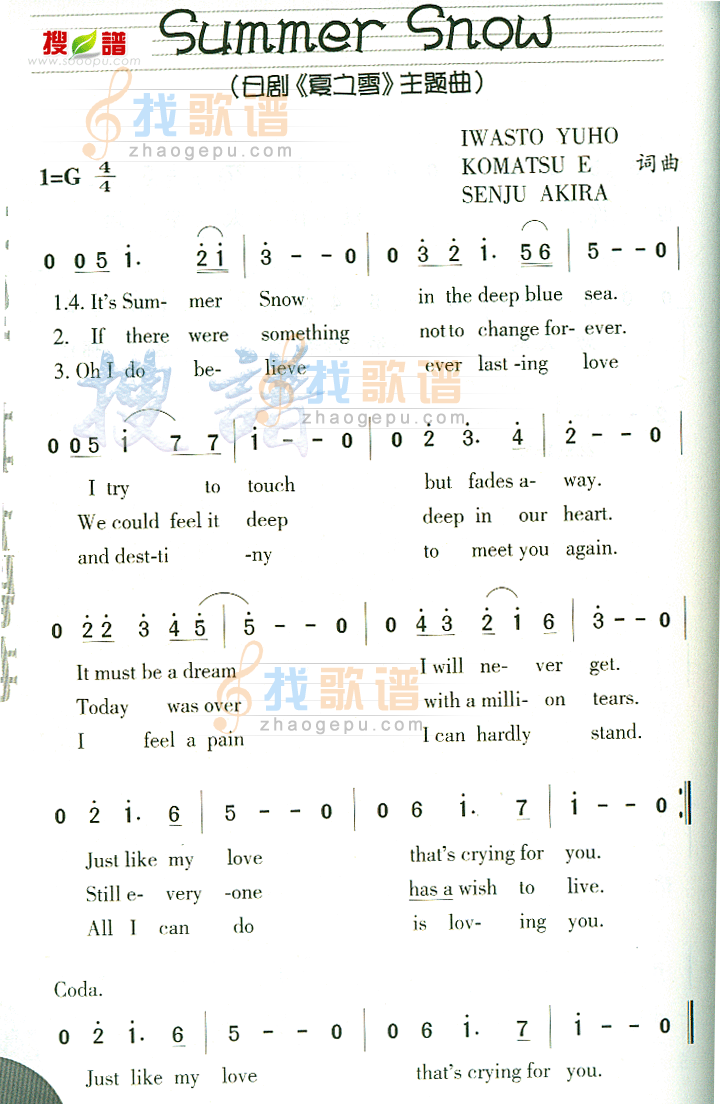 搜譜
www.sooopu.com
Summer Snow
（日剧《夏之雪》主题曲）
找歌谱
zhaogepu.com
IWASTO YUHO
KOMATSU E 词曲
SENJU AKIRA
1=G 4/4
0 0 5 1̇. 2̇ 1̇ | 3̇ - - 0 | 0 3̇ 2̇ 1̇. 5 6 | 5 - - 0 |
1.4. It's Sum- mer Snow in the deep blue sea.
2. If there were something not to change for- ever.
3. Oh I do be- lieve ever last -ing love
搜譜
找歌谱
zhaogepu.com
0 0 5 1̇ 7 7 | 1̇ - - 0 | 0 2̇ 3̇. 4̇ | 2̇ - - 0 |
I try to touch but fades a- way.
We could feel it deep deep in our heart.
and dest-ti -ny to meet you again.
0 2̇ 2̇ 3̇ 4̇ 5̇ | 5̇ - - 0 | 0 4̇ 3̇ 2̇ 1̇ 6 | 3̇ - - 0 |
It must be a dream I will ne- ver get.
Today was over with a milli- on tears.
I feel a pain I can hardly stand.
找歌谱
zhaogepu.com
0 2̇ 1̇. 6 | 5 - - 0 | 0 6 1̇. 7 | 1̇ - - 0 :‖
Just like my love that's crying for you.
Still e- very -one has a wish to live.
All I can do is lov- ing you.
Coda.
0 2̇ 1̇. 6 | 5 - - 0 | 0 6 1̇. 7 | 1̇ - - 0 ‖
Just like my love that's crying for you.